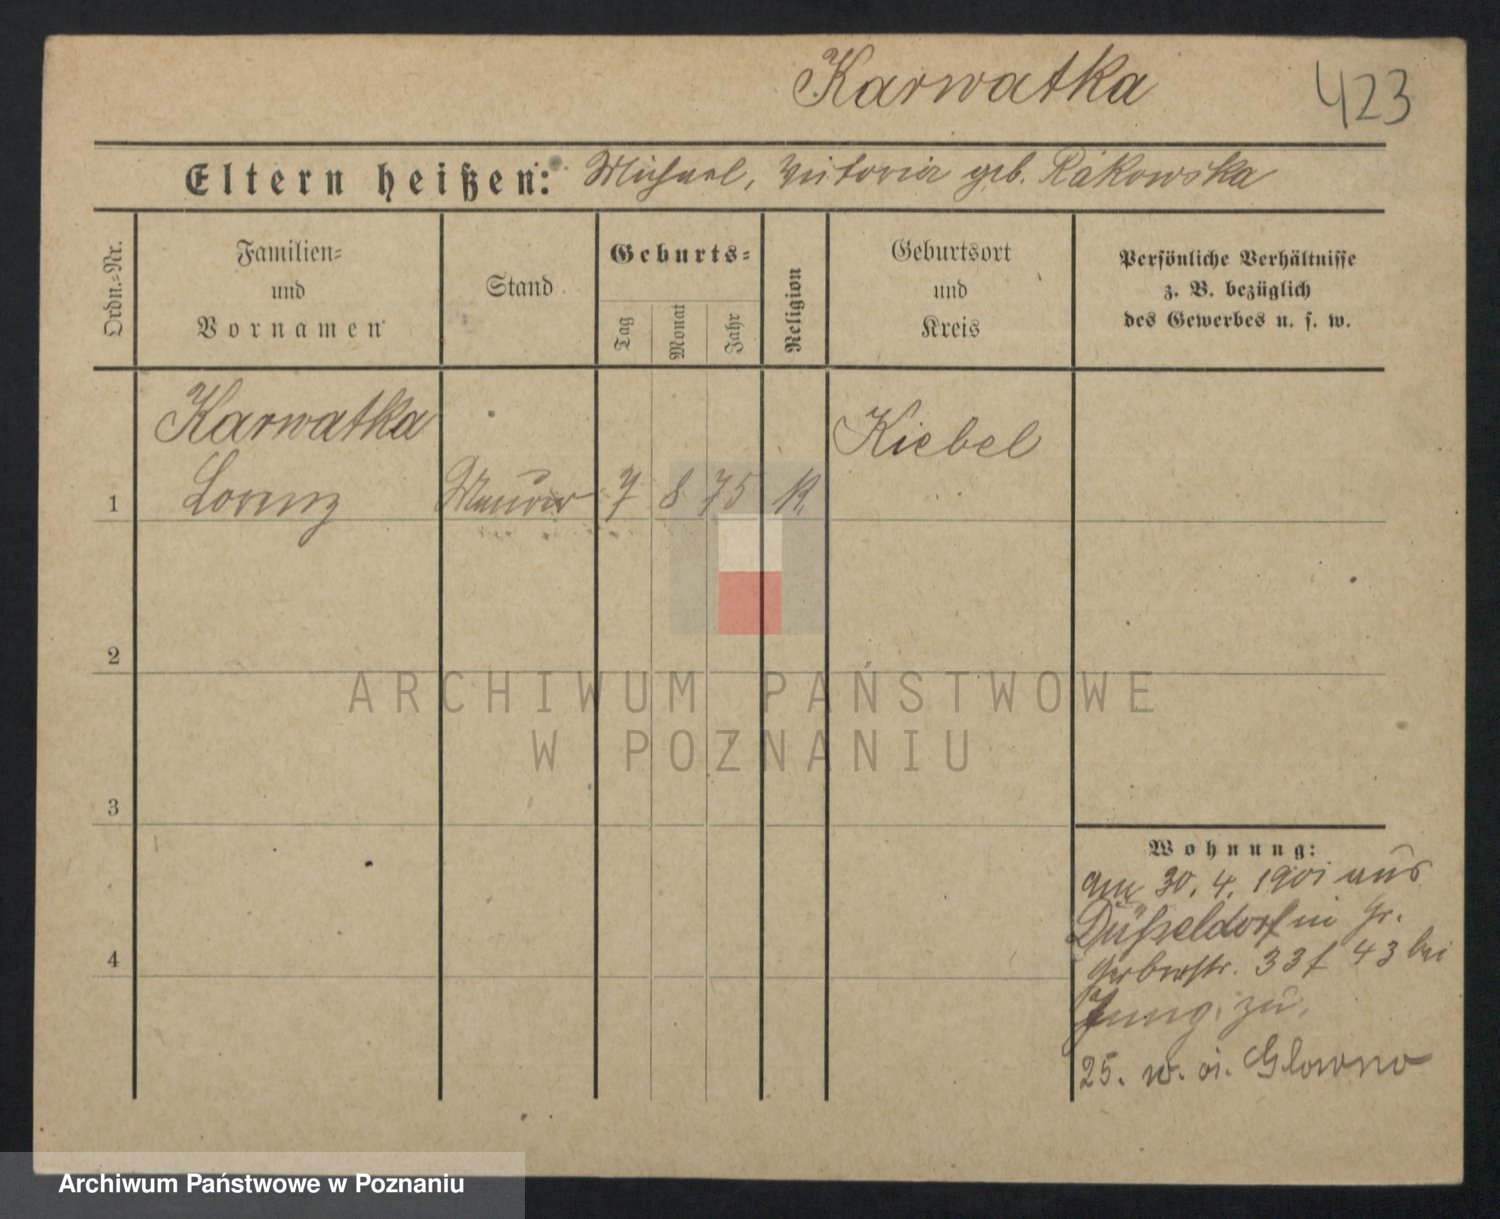 Karwatka
423
Eltern heißen: Michael, Victoria geb. Rakowska
Ordn.-Nr.
Familien-
und
Vornamen
Stand
Geburts-
Tag
Monat
Jahr
Religion
Geburtsort
und
Kreis
Persönliche Verhältnisse
z. B. bezüglich
des Gewerbes u. s. w.
Karwatka
Kiebel
1 Lorenz Maurer 7 8 75 K.
2
ARCHIWUM PAŃSTWOWE
W POZNANIU
3
Wohnung:
am 30. 4. 1901 aus
Düsseldorf in Gr.
Gerberstr. 33 f 43 bei
Jung. zu.
25. w. Glowno
4
Archiwum Państwowe w Poznaniu